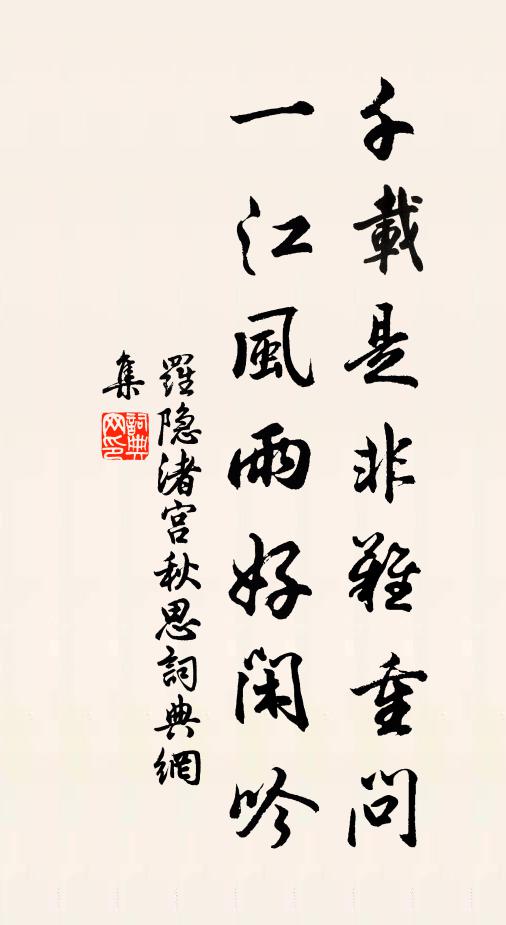 千載是非難重問
一江風雨好閑吟
羅隐渚宮秋思詞典網
集
詞典网印